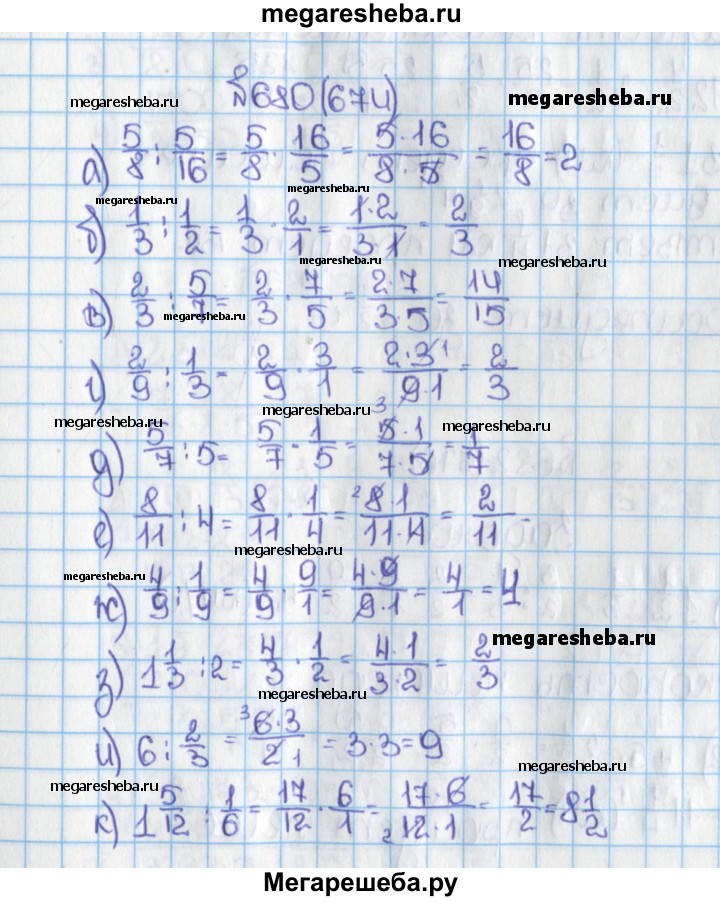 megaresheba.ru
№680(674)
megaresheba.ru megaresheba.ru
а) 5/8 : 5/16 = 5/8 · 16/5 = 5·16/8·5 = 16/8 = 2
megaresheba.ru
megaresheba.ru
б) 1/3 : 1/2 = 1/3 · 2/1 = 1·2/3·1 = 2/3
megaresheba.ru megaresheba.ru
в) 2/3 : 5/7 = 2/3 · 7/5 = 2·7/3·5 = 14/15
megaresheba.ru
г) 2/9 : 1/3 = 2/9 · 3/1 = 2·3 1/3 9·1 = 2/3
megaresheba.ru
megaresheba.ru megaresheba.ru
д) 5/7 : 5 = 5/7 · 1/5 = 5·1/7·5 = 1/7
е) 8/11 : 4 = 8/11 · 1/4 = 2 8·1/11·4 = 2/11.
megaresheba.ru
megaresheba.ru
ж) 4/9 : 1/9 = 4/9 · 9/1 = 4·9/9·1 = 4/1 = 4
megaresheba.ru
з) 1 1/3 : 2 = 4/3 · 1/2 = 4·1/3·2 = 2/3
megaresheba.ru
и) 6 : 2/3 = 3 6·3/2 1 = 3·3 = 9
megaresheba.ru megaresheba.ru
к) 1 5/12 : 1/6 = 17/12 · 6/1 = 17·6/2 12·1 = 17/2 = 8 1/2
Мегарешеба.ру